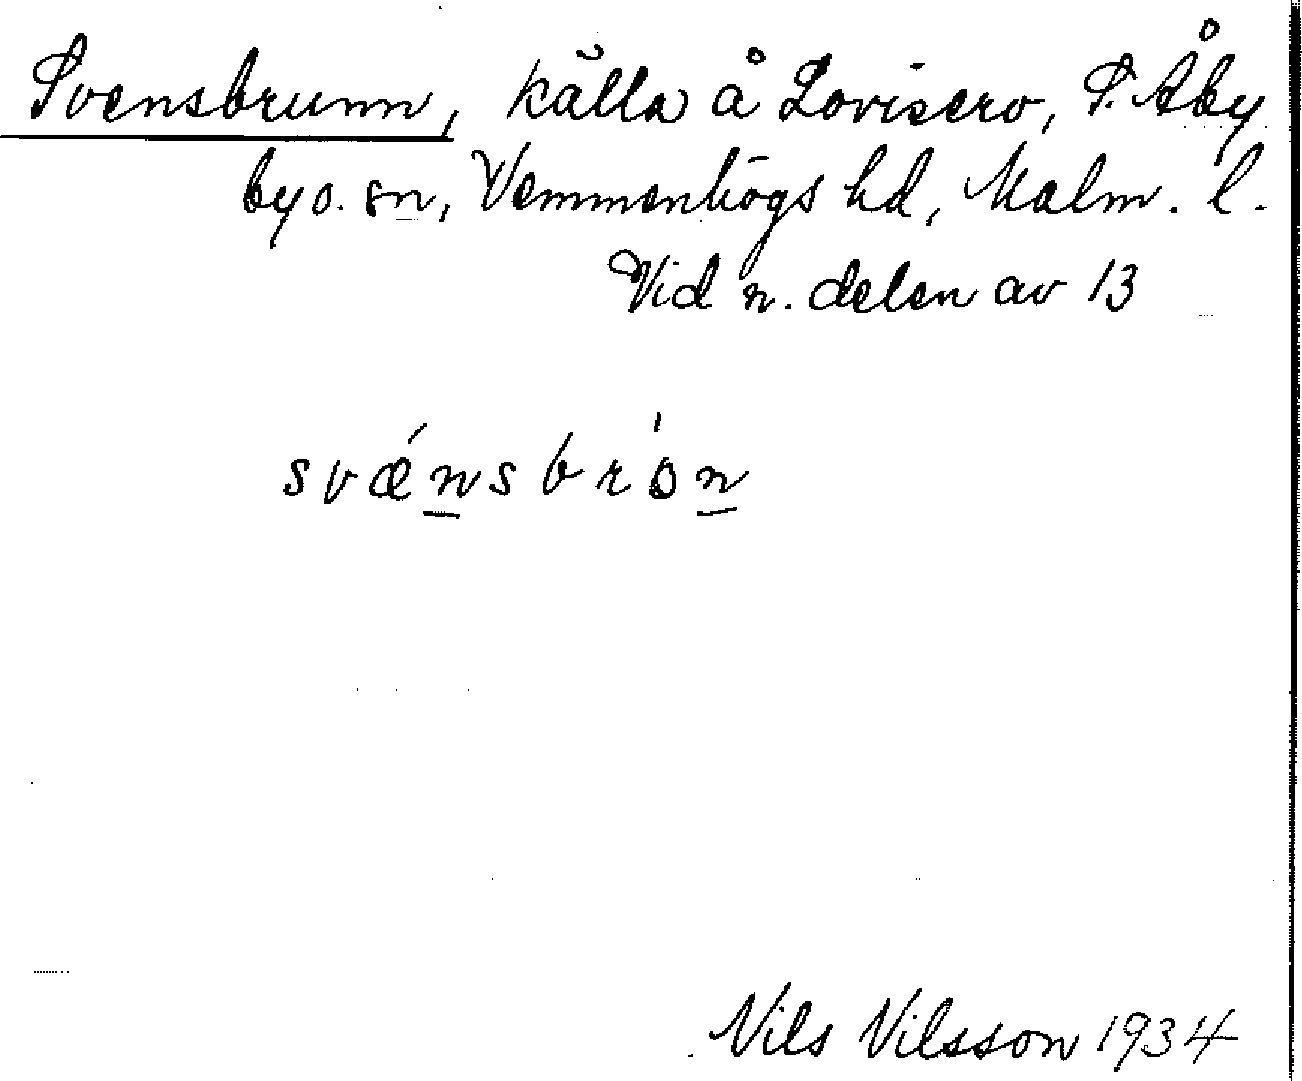 Svensbrunn, källa å Lovisero, S. Åby
by o. sn, Vemmenhögs hd, Malm. l.
Vid n. delen av 13
svǽnsbròn
Nils Nilsson 1934